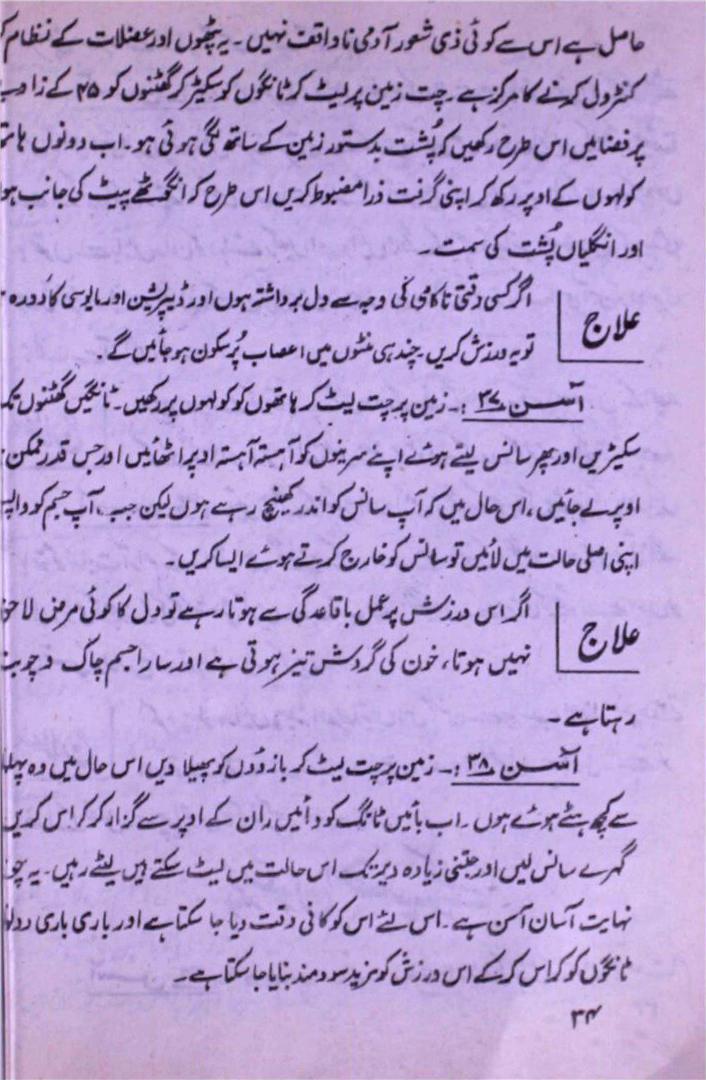 حاصل ہے اس سے کوئی ذی شعور آدمی ناواقف نہیں۔ یہ پٹھوں اور عضلات کے نظام
کنٹرول کرنے کا مرکز ہے۔ چت زمین پر لیٹ کر ٹانگوں کو سکیڑ کر گھٹنوں کو ۴۵ کے
پر فضا میں اس طرح رکھیں کہ پُشت بدستور زمین کے ساتھ لگی ہوئی ہو۔ اب دونوں
کولہوں کے اوپر رکھ کر اپنی گرفت ذرا مضبوط کریں اس طرح کہ انگوٹھے پیٹ کی جانب
اور انگلیاں پُشت کی سمت۔
علاج
اگر کسی وقتی ناکامی کی وجہ سے دل برداشتہ ہوں اور ڈیپریشن اور مایوسی کا دَورہ
تو یہ ورزش کریں چند ہی منٹوں میں اعصاب پُرسکون ہو جائیں گے۔
آسن ۳۷ :۔ زمین پر چت لیٹ کر ہاتھوں کو کولہوں پر رکھیں۔ ٹانگیں گھٹنوں تک
سکیڑیں اور پھر سانس لیتے ہوئے اپنے سرینوں کو آہستہ آہستہ اوپر اٹھائیں اور جس قدر ممکن
اوپر لے جائیں، اس حال میں کہ آپ سانس کو اندر کھینچ رہے ہوں لیکن جب آپ جسم کو
اپنی اصلی حالت میں لائیں تو سانس کو خارج کرتے ہوئے ایسا کریں۔
علاج
اگر اس ورزش پر عمل باقاعدگی سے ہوتا رہے تو دل کا کوئی مرض
نہیں ہوتا، خون کی گردش تیز ہوتی ہے اور سارا جسم چاک و
رہتا ہے۔
آسن ۳۸ :۔ زمین پر چت لیٹ کر بازوؤں کو پھیلا دیں اس حال میں وہ
سے کچھ ہٹے ہوئے ہوں۔ اب بائیں ٹانگ کو دائیں ران کے اوپر سے گزار کر کراس کریں
گہرے سانس لیں اور جتنی زیادہ دیر تک اس حالت میں لیٹ سکتے ہیں لیٹے رہیں۔ یہ
نہایت آسان آسن ہے۔ اس لئے اس کو کافی وقت دیا جا سکتا ہے اور باری باری
ٹانگوں کو کراس کر کے اس ورزش کو مزید سود مند بنایا جا سکتا ہے۔
۳۴